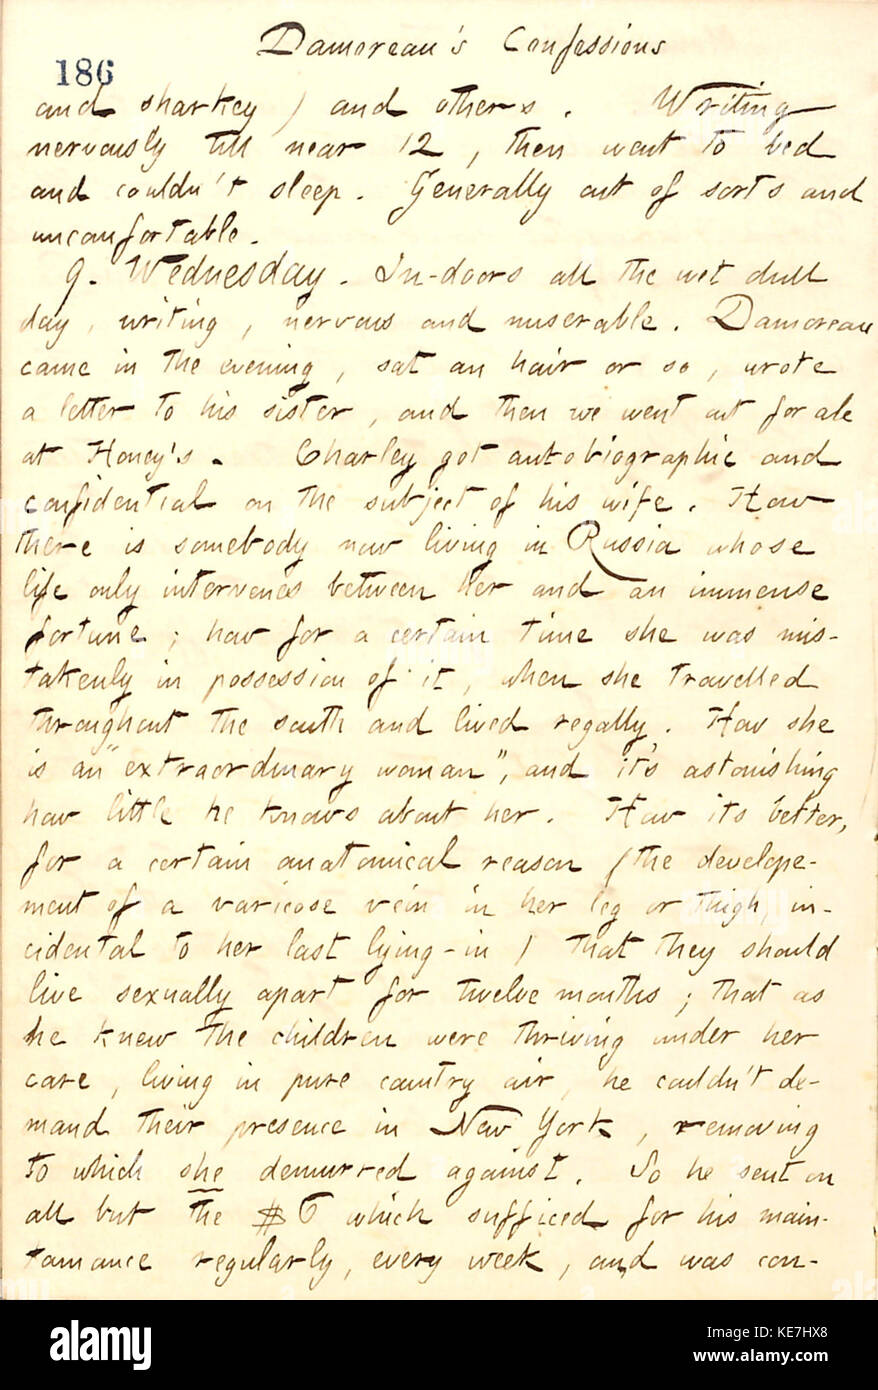 Damoreau's Confessions
186
and sharkey) and others. Writing
nervously till near 12, then went to bed
and couldn't sleep. Generally out of sorts and
uncomfortable.
9. Wednesday. In-doors all the wet dull
day, writing, nervous and miserable. Damoreau
came in the evening, sat an hour or so, wrote
a letter to his sister, and then we went out for ale
at Honey's. Charley got autobiographic and
confidential on the subject of his wife. How
there is somebody now living in Russia whose
life only intervenes between her and an immense
fortune; how for a certain time she was mis-
takenly in possession of it, when she travelled
throughout the south and lived regally. How she
is an "extraordinary woman", and it's astonishing
how little he knows about her. How its better,
for a certain anatomical reason (the develope-
ment of a varicose vein in her leg or thigh, in-
cidental to her last lying-in) that they should
live sexually apart for twelve months; that as
he knew the children were thriving under her
care, living in pure country air, he couldn't de-
mand their presence in New York, removing
to which she demurred against. So he sent on
all but the $6 which sufficed for his main-
tainance regularly, every week, and was con-
alamy
Image ID: KE7HX8
www.alamy.com